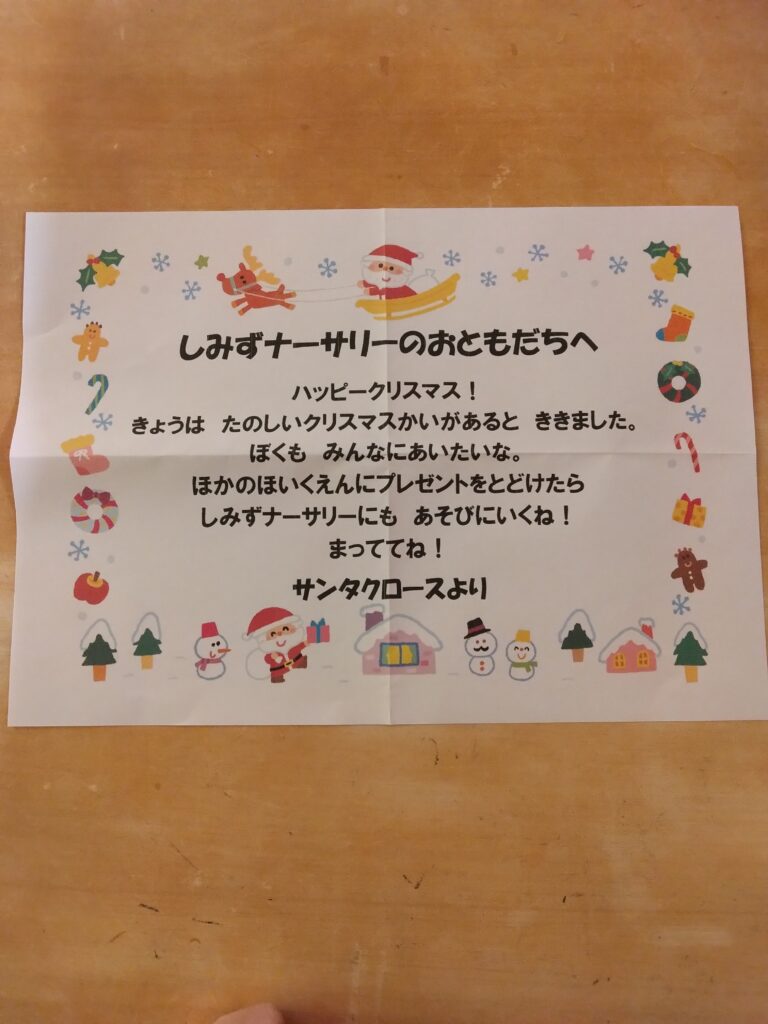 しみずナーサリーのおともだちへ
ハッピークリスマス！
きょうは　たのしいクリスマスかいがあると　ききました。
ぼくも　みんなにあいたいな。
ほかのほいくえんにプレゼントをとどけたら
しみずナーサリーにも　あそびにいくね！
まっててね！
サンタクロースより